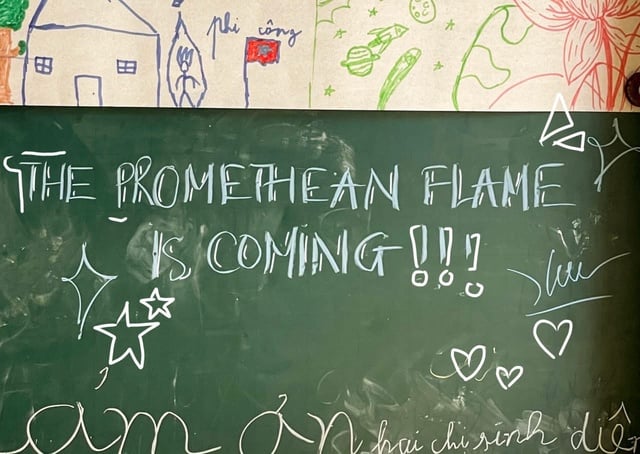 phi công
THE PROMETHEAN FLAME
IS COMING!!!
hai chi sinh